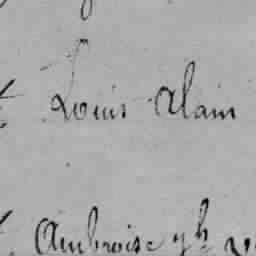 Louis Alain
Ambroise